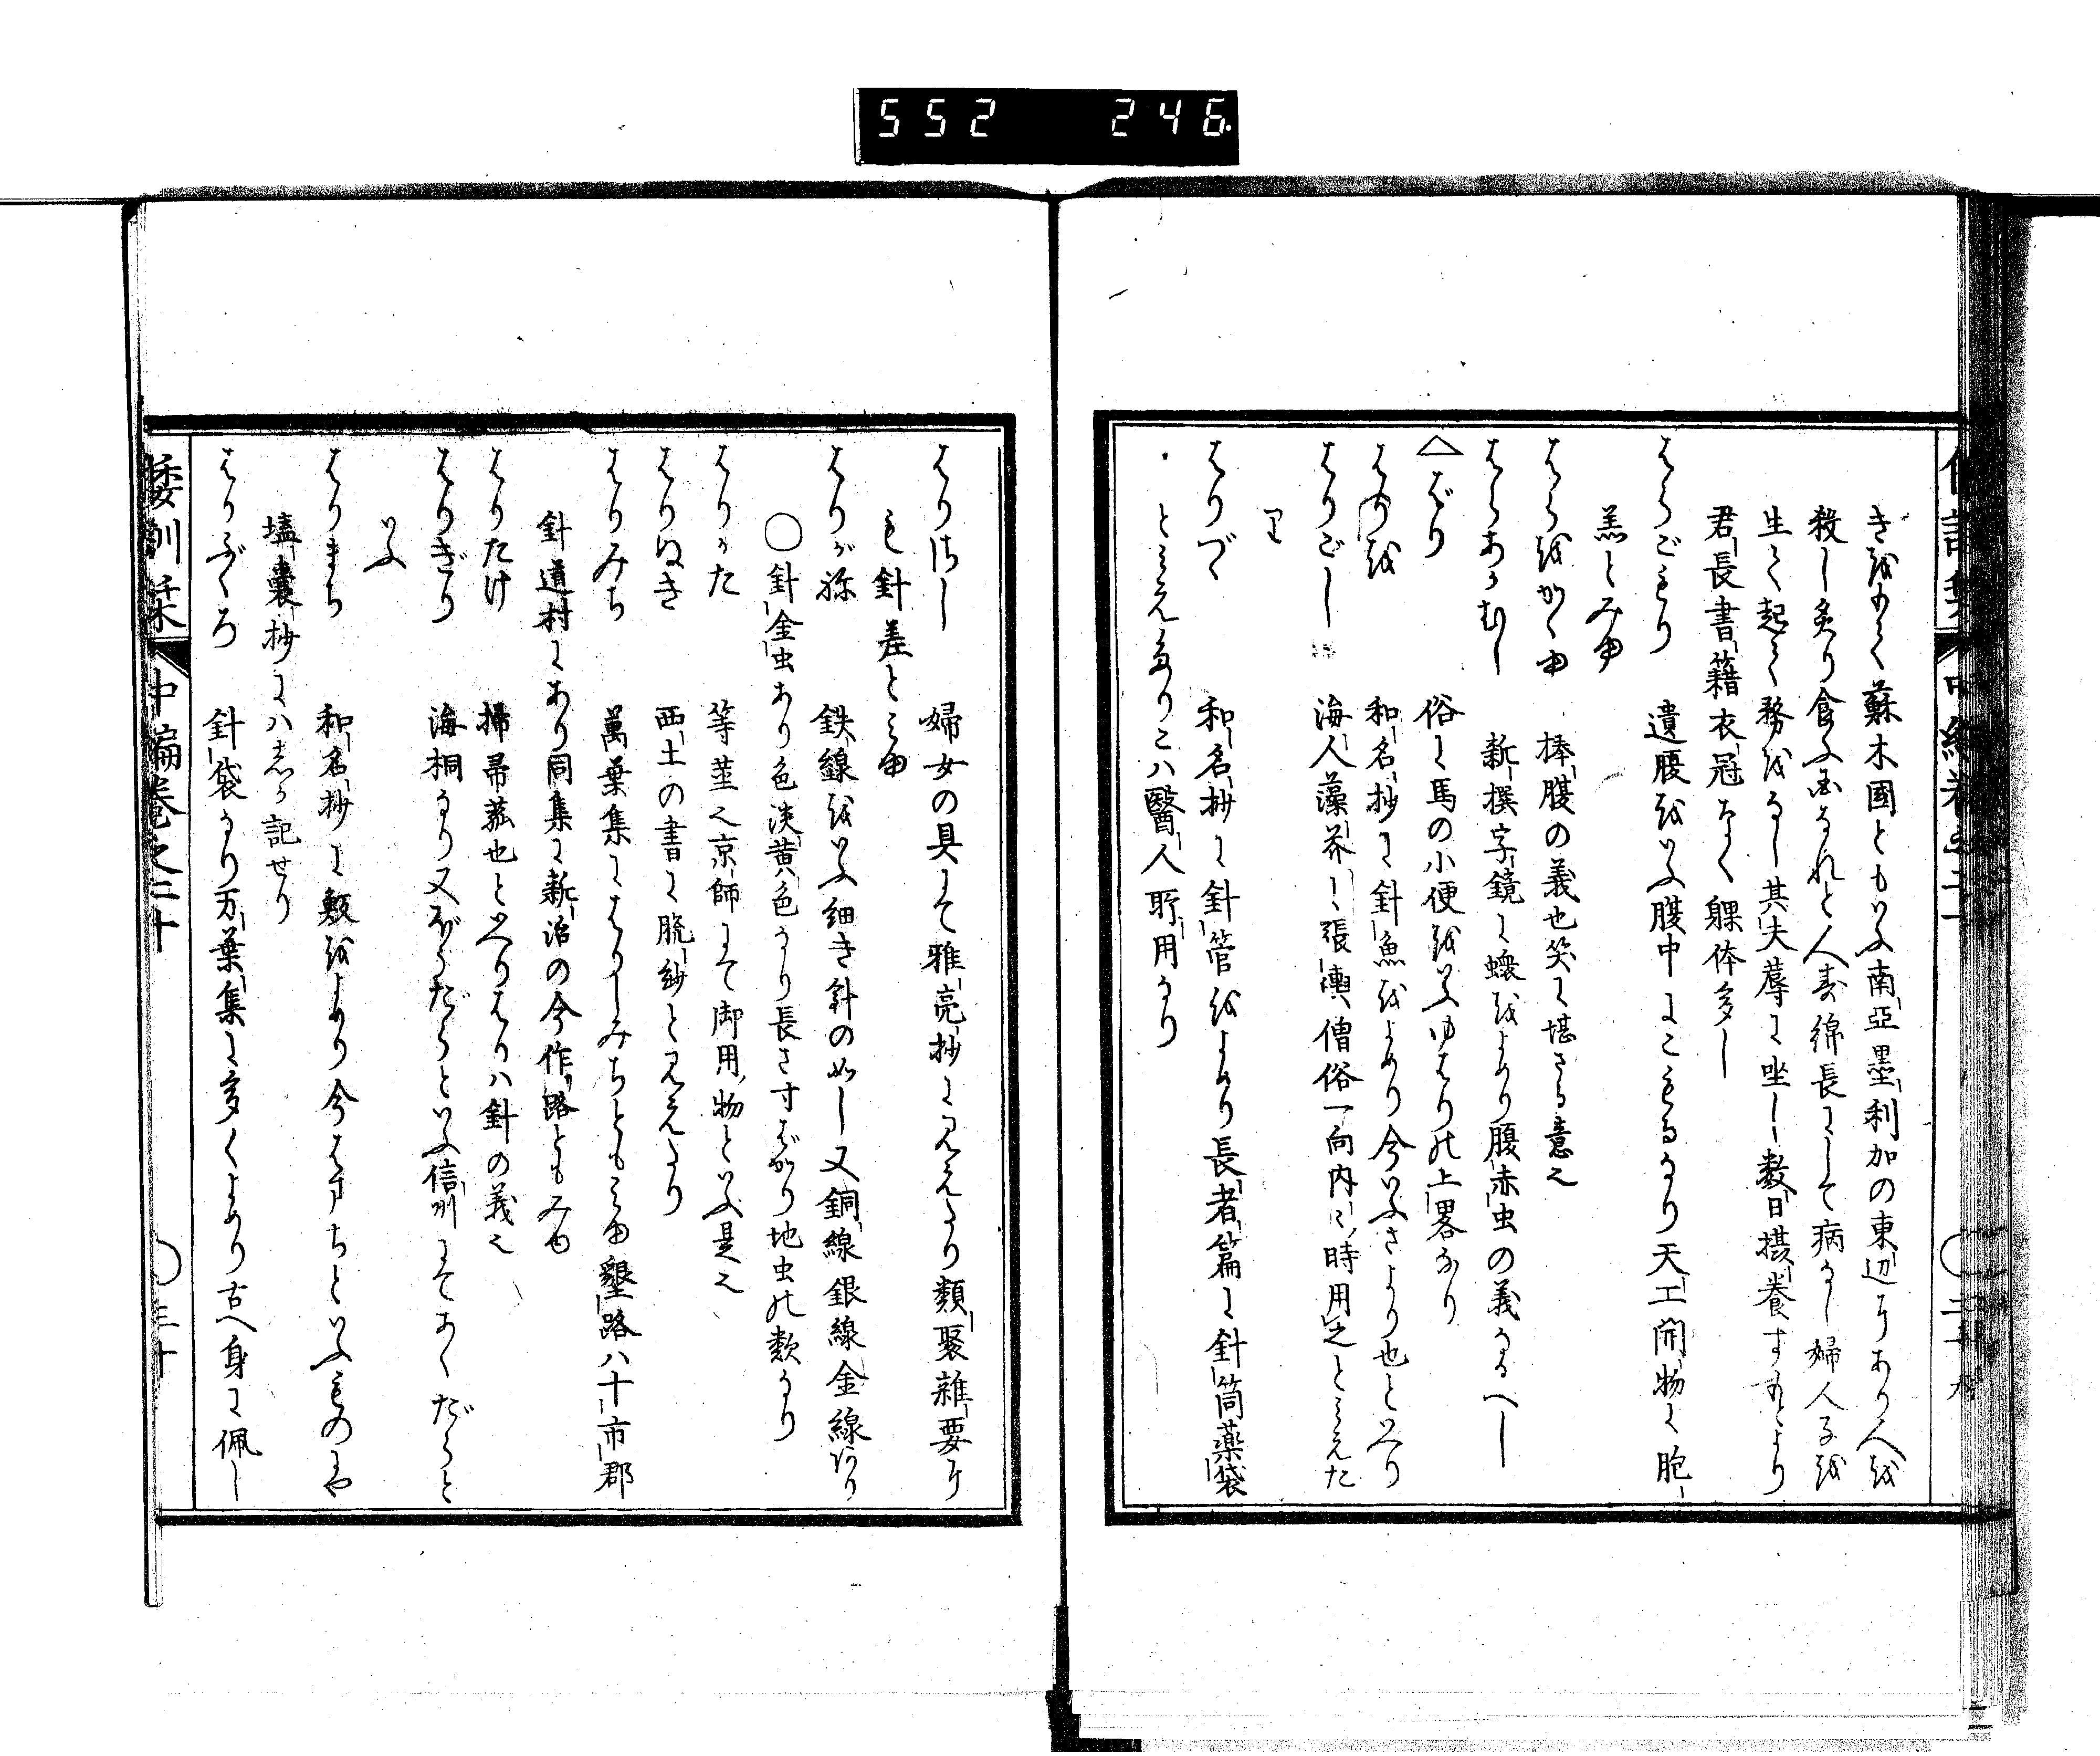 552 246
きをなく蘇木國ともいふ南亞墨利加の東辺にあり人を
殺し炙り食ふ国なれと人寿綿長にして病なし婦人子を
生て起て務をなし其夫蓐に坐し数日摂養すもとより
君長書籍衣冠なく躶体多し
はらごもり 遺腹をいふ腹中にこもるなり天工開物に胞
羔とみゆ
はらをかゝゆ 捧腹の義也笑に堪さる意也
はらあかむし 新撰字鏡に蠑をよめり腹赤虫の義なるへし
△ばり 俗に馬の小便をいふゆはりの上畧なり
はりを 和名抄に針魚をよめり今いふさより也といへり
はりごし 海人藻芥に張輿僧俗一向内々時用之とみえた
り
はりづゝ 和名抄に針管をよめり長者篇に針筒薬袋
とみえたりこハ醫人所用なり
はりさし 婦女の具にて雅亮抄にみえたり類聚雑要に
も針差とみゆ
はりがね 鉄線をいふ細き針の如し又銅線銀線金線あり
○針金虫あり色淡黄色なり長さ寸ばかり地虫の類なり
はりかた 等莖也京師にて御用物といふ是也
はりぬき 西土の書に脱紗とみえたり
はりみち 萬葉集にはりしみちともみゆ墾路八十市郡
針道村にあり同集に新治の今作路ともみゆ
はりたけ 掃帚菰也といへりはりハ針の義也
はりぎり 海桐なり又ぼうだらといふ信州にてあくだらと
いふ
はりまち 和名抄に魬をよめり今はまちといふものにや
壒嚢抄にハしか記せり
はりぶくろ 針袋なり万葉集に多くよめり古へ身に佩し
倭訓栞 中編巻之二十 ○三十